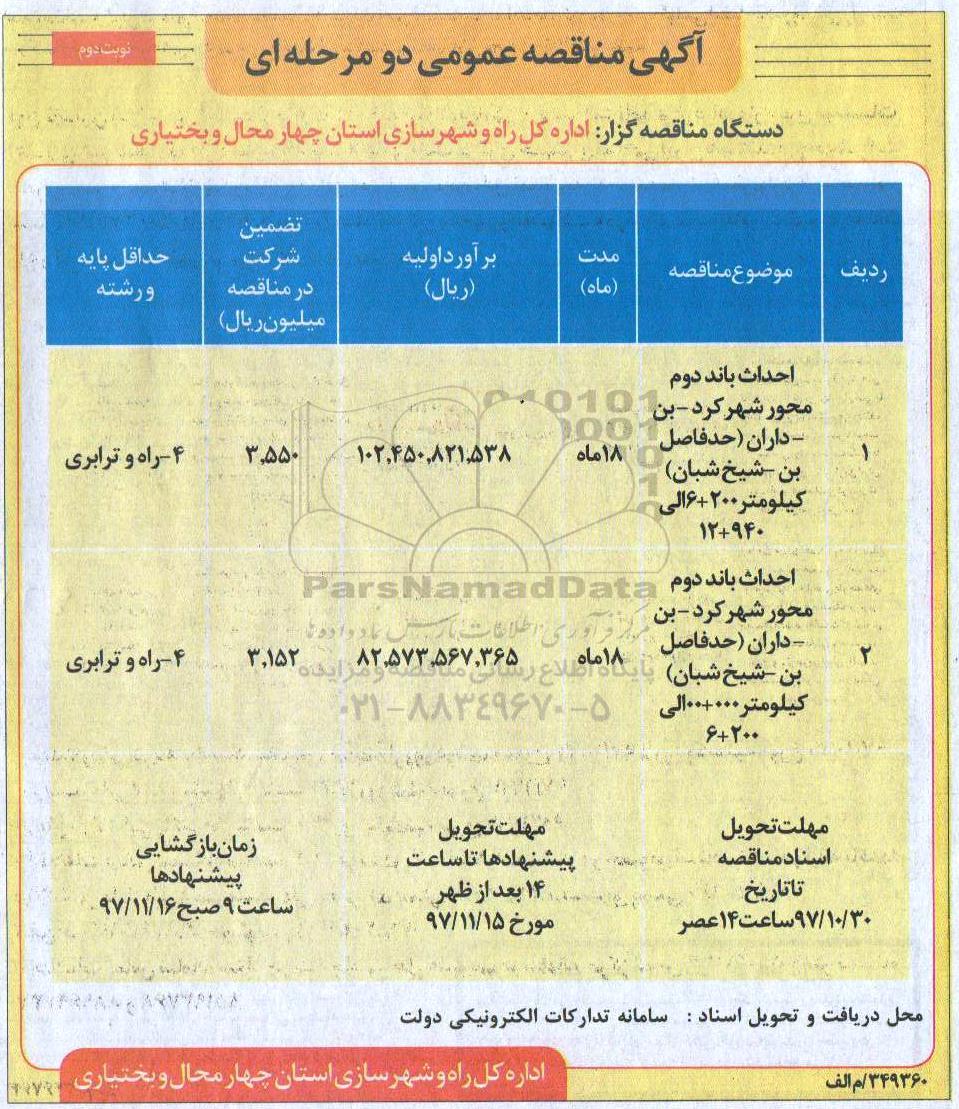 آگهی مناقصه عمومی دو مرحله‌ای
نوبت دوم
دستگاه مناقصه گزار: اداره کل راه و شهرسازی استان چهار محال و بختیاری
ردیف
موضوع مناقصه
مدت
(ماه)
برآورد اولیه
(ریال)
تضمین
شرکت
در مناقصه
میلیون ریال)
حداقل پایه
و رشته
۱
احداث باند دوم
محور شهر کرد - بن
- داران (حدفاصل
بن - شیخ شبان)
کیلومتر ۲۰۰+۶ الی
۹۴۰+۱۲
۱۸ماه
۱۰۲,۴۵۰,۸۲۱,۵۳۸
۳,۵۵۰
۴-راه و ترابری
۲
احداث باند دوم
محور شهر کرد - بن
- داران (حدفاصل
بن - شیخ شبان)
کیلومتر ۰۰۰+۰۰ الی
۲۰۰+۶
۱۸ماه
۸۲,۵۷۳,۵۶۷,۳۶۵
۳,۱۵۲
۴-راه و ترابری
ParsNamadData
مرکز فرآوری اطلاعات پارس نماد داده ها
پایگاه اطلاع رسانی مناقصه و مزایده
۰۲۱-۸۸۳۴۹۶۷۰-۵
مهلت تحویل
اسناد مناقصه
تا تاریخ
۹۷/۱۰/۳۰ ساعت ۱۴ عصر
مهلت تحویل
پیشنهادها تا ساعت
۱۴ بعد از ظهر
مورخ ۹۷/۱۱/۱۵
زمان بازگشایی
پیشنهادها
ساعت ۹ صبح ۹۷/۱۱/۱۶
محل دریافت و تحویل اسناد : سامانه تدارکات الکترونیکی دولت
اداره کل راه و شهرسازی استان چهار محال و بختیاری
۳۴۹۳۶۰/م الف